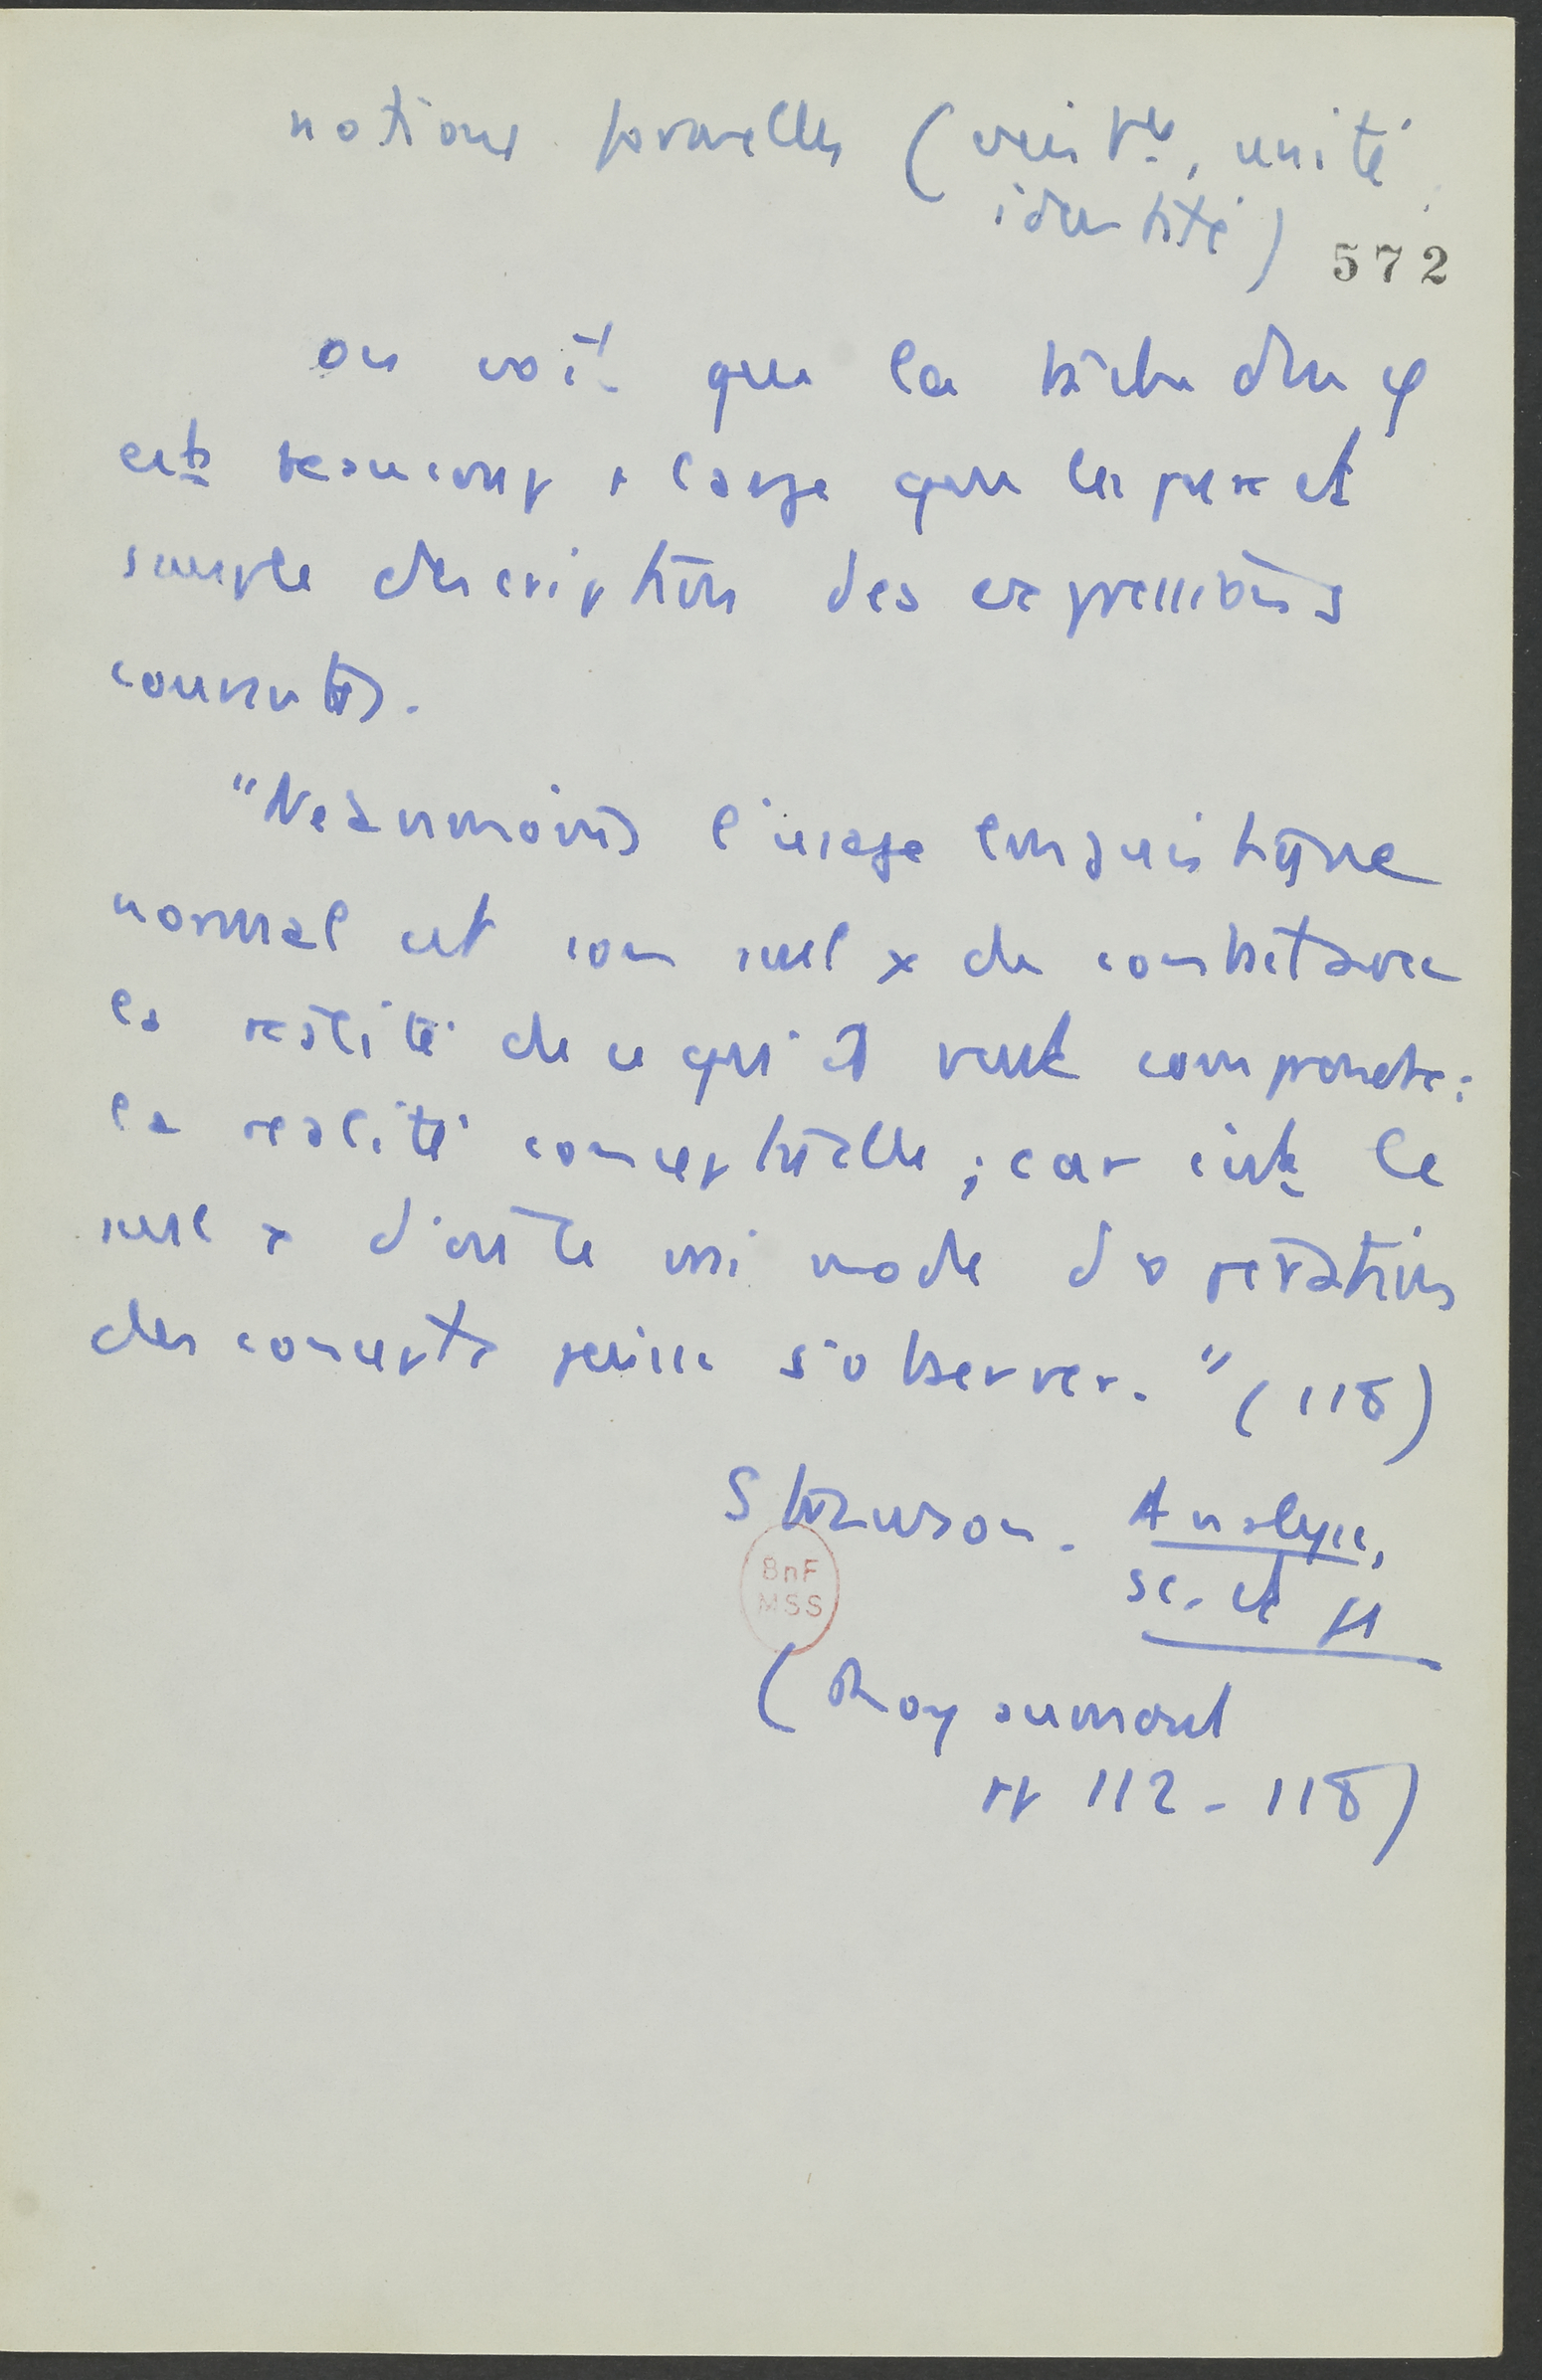 notions formelles (existce, unité,
identité)
572
on voit que la tâche du φ
est beaucoup + large que la pure et
simple description des expressions
courantes.
"Néanmoins l'usage linguistique
normal est son seul x de contact avec
la réalité de ce qu'il veut comprendre :
la réalité conceptuelle ; car c'est le
seul x d'où le mode d'opération
des concepts puisse s'observer." (118)
Strawson. Analyse,
sc. et
BnF
MSS
(Royaumont
pp 112-118)